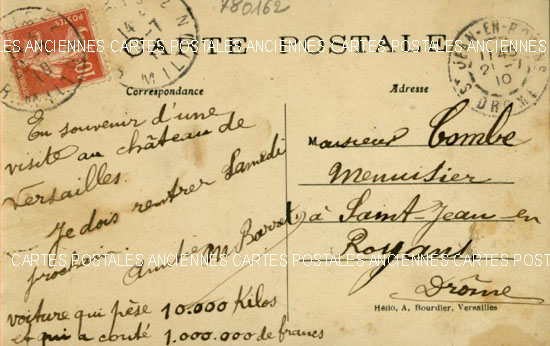 780162
CARTE POSTALE
Correspondance
Adresse
En souvenir d'une
visite au château de
Versailles.
Je dois rentrer Samedi
prochain
voiture qui pèse 10.000 Kilos
et qui a couté 1.000.000 de francs
Monsieur Combe
Menuisier
à Saint-Jean en
Royans
Drôme
Hélio, A. Bourdier, Versailles
POSTES
10
ST JEAN-EN-ROYANS
21
10
DROME
CARTES POSTALES ANCIENNES CARTES POSTALES ANCIENNES CARTES POSTALES ANCIENNES
CARTES POSTALES ANCIENNES CARTES POSTALES ANCIENNES CARTES POSTALES ANCIENNES